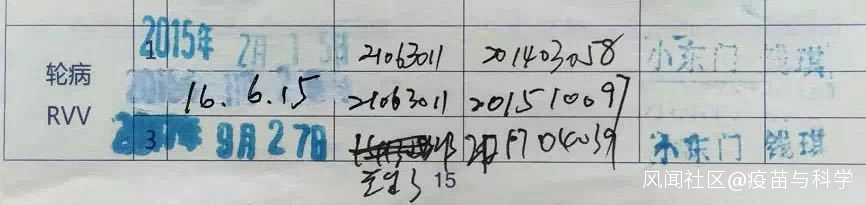 轮病
RVV
1 2015年 2月 15日 21063011 201403058 小东门 钱琪
16.6.15 21063011 201510097
3 9月27日 201704039 小东门 钱琪
15
风闻社区@疫苗与科学